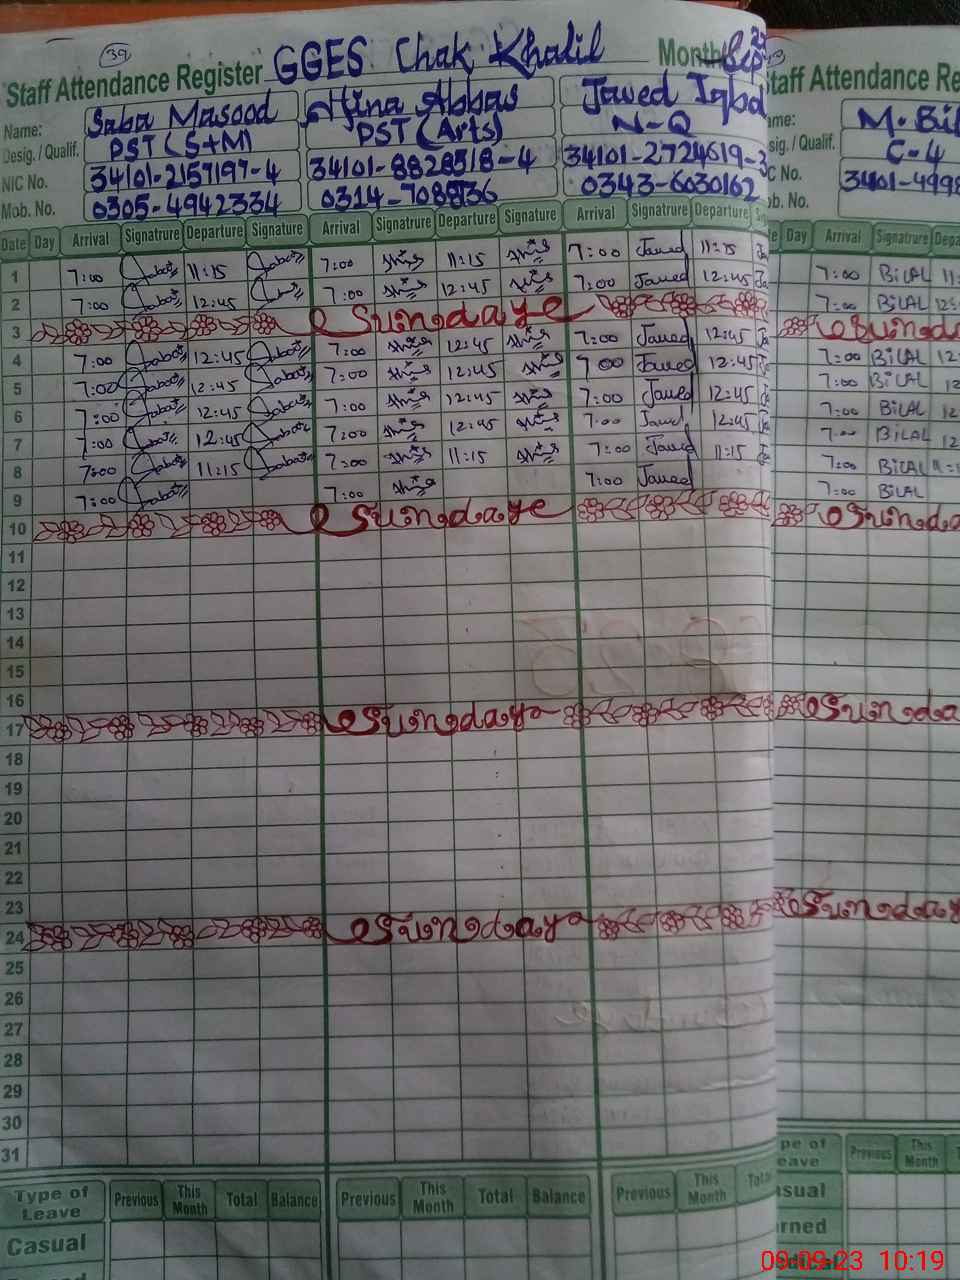 39
Staff Attendance Register GGES Chak Khalil Month Sep
Name: Saba Masood Hina Abbas Javed Iqbal
Desig. / Qualif. PST (S+M) PST (Arts) N-Q
NIC No. 34101-2157197-4 34101-8828518-4 34101-2724619-3
Mob. No. 0305-4942334 0343-6030162
Date Day Arrival Signatrure Departure Signature Arrival Signatrure Departure Signature Arrival Signatrure Departure
1 7:00 Saba 11:15 Saba 7:00 11:15 7:00 Javed 11:15
2 7:00 Saba 12:45 7:00 12:45 7:00 Javed 12:45
3 Sunday
4 7:00 Saba 12:45 Saba 7:00 12:45 7:00 Javed 12:45
5 7:00 Saba 12:45 Saba 7:00 12:45 7:00 Javed 12:45
6 7:00 Saba 12:45 Saba 7:00 12:45 7:00 Javed 12:45
7 7:00 Saba 12:45 Saba 7:00 12:45 7:00 Javed 12:45
8 7:00 Saba 11:15 Saba 7:00 11:15 7:00 Javed 11:15
9 7:00 Saba 7:00 7:00 Javed
10 Sunday
11
12
13
14
15
16
17 Sunday
18
19
20
21
22
23
24 Sunday
25
26
27
28
29
30
31
Type of Leave Previous This Month Total Balance Previous This Month Total Balance Previous This Month Total
Casual
taff Attendance Re
ame: M. Bil
sig. / Qualif. C-4
C No. 3401-4998
b. No.
Day Arrival Signatrure Depa
7:00 BILAL 11:
7:00 BILAL 12:
Sunda
7:00 BILAL 12:
7:00 BILAL 12
7:00 BILAL 12
7:00 BILAL 12
7:00 BILAL 11:1
7:00 BILAL
Sunda
Sunda
Sunday
pe of eave Previous This Month
sual
rned
09-09-23 10:19